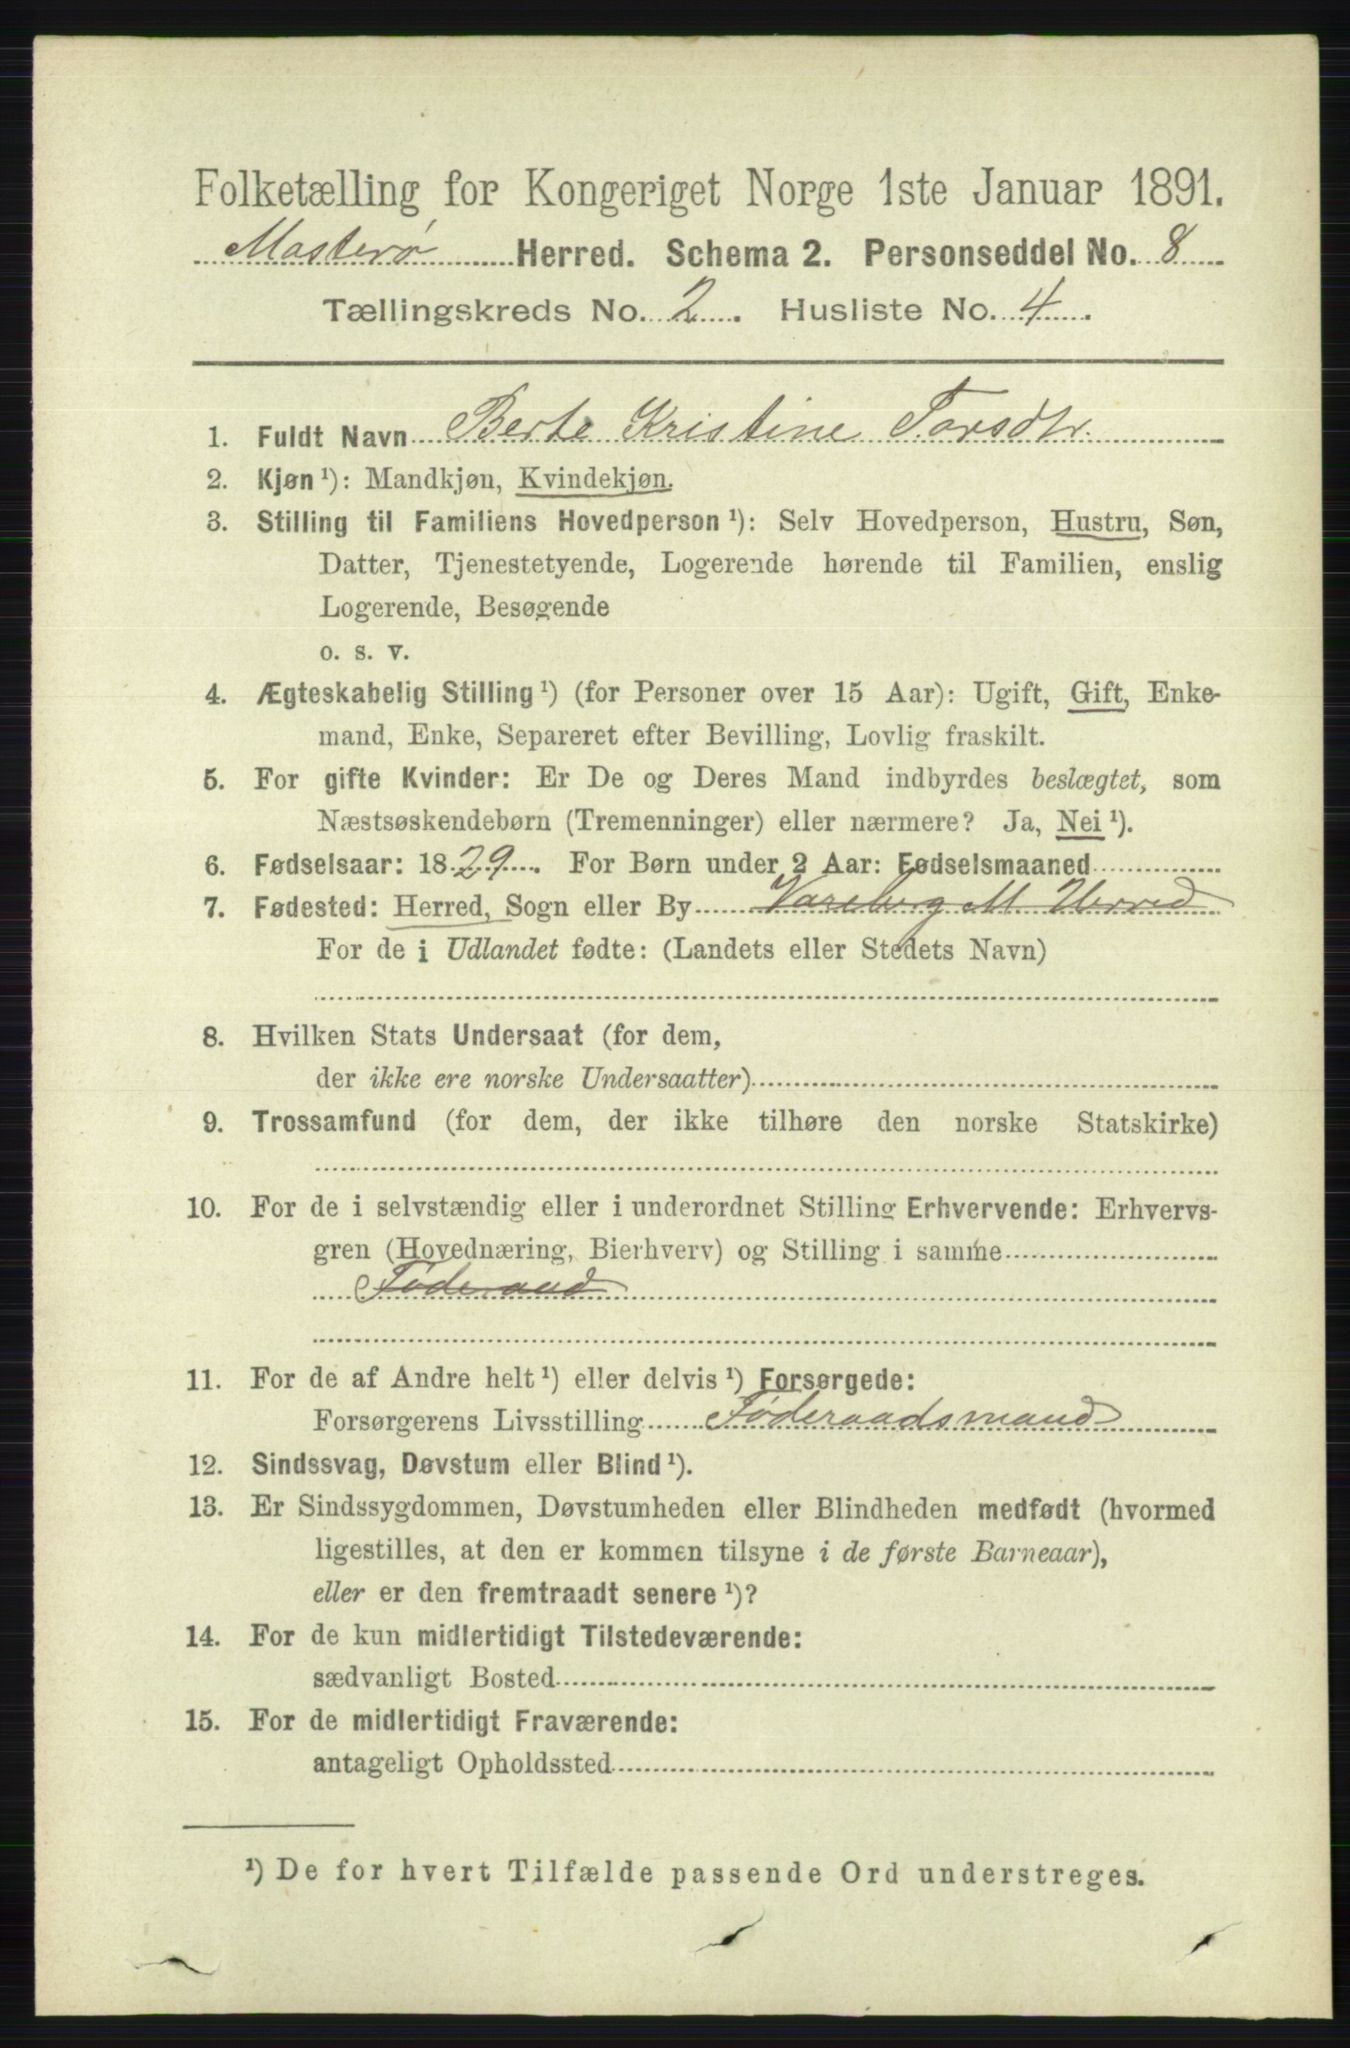 Folketælling for Kongeriget Norge 1ste Januar 1891.
Mosterø Herred. Schema 2. Personseddel No. 8
Tællingskreds No. 2. Husliste No. 4.
1. Fuldt Navn Berte Kristine Torsdtr.
2. Kjøn ¹): Mandkjøn, Kvindekjøn.
3. Stilling til Familiens Hovedperson ¹): Selv Hovedperson, Hustru, Søn,
Datter, Tjenestetyende, Logerende hørende til Familien, enslig
Logerende, Besøgende
o. s. v.
4. Ægteskabelig Stilling ¹) (for Personer over 15 Aar): Ugift, Gift, Enke-
mand, Enke, Separeret efter Bevilling, Lovlig fraskilt.
5. For gifte Kvinder: Er De og Deres Mand indbyrdes beslægtet, som
Næstsøskendebørn (Tremenninger) eller nærmere? Ja, Nei ¹).
6. Fødselsaar: 1829. For Børn under 2 Aar: Fødselsmaaned
7. Fødested: Herred, Sogn eller By Vareberg M. Herred
For de i Udlandet fødte: (Landets eller Stedets Navn)
8. Hvilken Stats Undersaat (for dem,
der ikke ere norske Undersaatter)
9. Trossamfund (for dem, der ikke tilhøre den norske Statskirke)
10. For de i selvstændig eller i underordnet Stilling Erhvervende: Erhvervs-
gren (Hovednæring, Bierhverv) og Stilling i samme
Føderaad
11. For de af Andre helt ¹) eller delvis ¹) Forsørgede:
Forsørgerens Livsstilling Føderaadsmand
12. Sindssvag, Døvstum eller Blind ¹).
13. Er Sindssygdommen, Døvstumheden eller Blindheden medfødt (hvormed
ligestilles, at den er kommen tilsyne i de første Barneaar),
eller er den fremtraadt senere ¹)?
14. For de kun midlertidigt Tilstedeværende:
sædvanligt Bosted
15. For de midlertidigt Fraværende:
antageligt Opholdssted
¹) De for hvert Tilfælde passende Ord understreges.